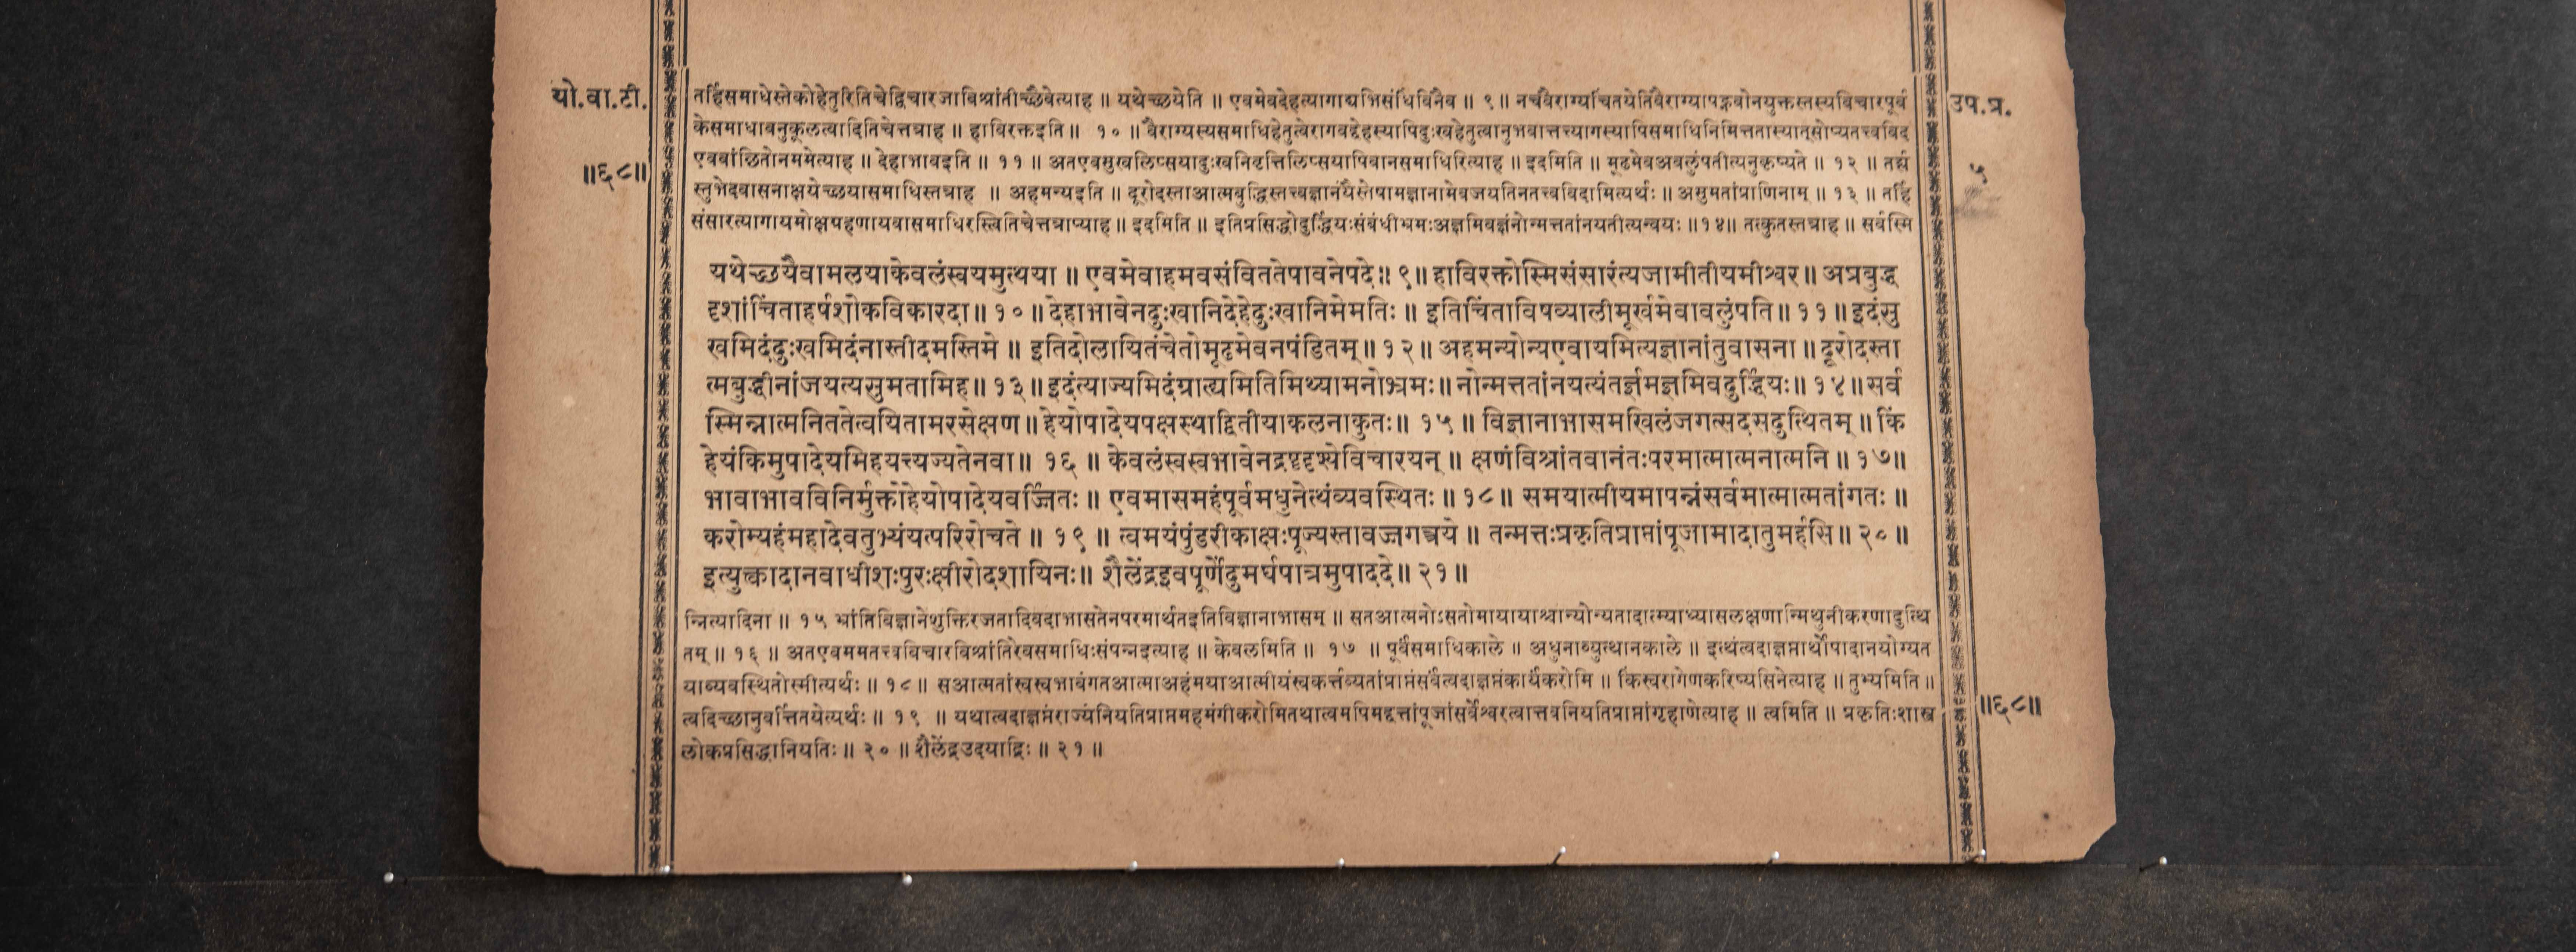 यो.वा.टी.
॥६८॥
तर्हिसमाधेस्तेकोहेतुरितिचेद्विचारजाविश्रांतीच्छैवेत्याह ॥ यथेच्छयेति ॥ एवमेवदेहत्यागाद्यभिसंधिंविनैव ॥ ९ ॥ नचवैराग्यचिंतयेतिवैराग्यापह्नवोनयुक्तस्तस्यविचारपूर्व
केसमाधावनुकूलत्वादितिचेत्तत्राह ॥ हाविरक्तइति ॥ १० ॥ वैराग्यस्यसमाधिहेतुत्वेरागवद्देहस्यापिदुःखहेतुत्वानुभवात्तत्त्यागस्यापिसमाधिनिमित्ततास्यात्सोप्यतत्त्वविद
एववांछितोनममेत्याह ॥ देहाभावइति ॥ ११ ॥ अतएवसुखलिप्सयादुःखनिवृत्तिलिप्सयापिवानसमाधिरित्याह ॥ इदमिति ॥ मूढमेवअवलुंपतीत्यनुकृष्यते ॥ १२ ॥ तर्ह्य
स्तुभेदवासनाक्षयेच्छयासमाधिस्तत्राह ॥ अहमन्यइति ॥ दूरोदस्ताआत्मबुद्धिस्तत्त्वज्ञानंयैस्तेषामज्ञानामेवजयतिनतत्त्वविदामित्यर्थः ॥ असुमतांप्राणिनाम् ॥ १३ ॥ तर्हि
संसारत्यागायमोक्षग्रहणायवासमाधिरस्त्वितिचेत्तत्राप्याह ॥ इदमिति ॥ इतिप्रसिद्धोदुर्द्धियःसंबंधीभ्रमःअज्ञमिवज्ञंनोन्मत्ततांनयतीत्यन्वयः ॥१४॥ तत्कुतस्तत्राह ॥ सर्वस्मि
यथेच्छयैवामलयाकेवलंस्वयमुत्थया ॥ एवमेवाहमवसंविततेपावनेपदे॥ ९॥ हाविरक्तोस्मिसंसारंत्यजामीतीयमीश्वर॥ अप्रबुद्ध
दृशांचिंताहर्षशोकविकारदा॥ १०॥ देहाभावेनदुःखानिदेहेदुःखानिमेमतिः ॥ इतिचिंताविषव्यालीमूर्खमेवावलुंपति॥ ११॥ इदंसु
खमिदंदुःखमिदंनास्तीदमस्तिमे ॥ इतिदोलायितंचेतोमूढमेवनपंडितम्॥ १२॥ अहमन्योन्यएवायमित्यज्ञानांतुवासना ॥ दूरोदस्ता
त्मबुद्धीनांजयत्यसुमतामिह॥ १३॥ इदंत्याज्यमिदंग्राह्यमितिमिथ्यामनोभ्रमः॥ नोन्मत्ततांनयत्यंतर्ज्ञमज्ञमिवदुर्द्धियः॥ १४॥ सर्व
स्मिन्नात्मनिततेत्वयितामरसेक्षण॥ हेयोपादेयपक्षस्थाद्वितीयाकलनाकुतः॥ १५ ॥ विज्ञानाभासमखिलंजगत्सदसदुत्थितम् ॥ किं
हेयंकिमुपादेयमिहयत्त्यज्यतेनवा॥ १६ ॥ केवलंस्वस्वभावेनद्रष्टृदृश्येविचारयन् ॥ क्षणंविश्रांतवानंतःपरमात्मात्मनात्मनि ॥ १७॥
भावाभावविनिर्मुक्तोहेयोपादेयवर्ज्जितः ॥ एवमासमहंपूर्वमधुनेत्थंव्यवस्थितः ॥ १८॥ समयात्मीयमापन्नंसर्वमात्मात्मतांगतः ॥
करोम्यहंमहादेवतुभ्यंयत्परिरोचते ॥ १९ ॥ त्वमयंपुंडरीकाक्षःपूज्यस्तावज्जगत्रये ॥ तन्मत्तःप्रकृतिप्राप्तांपूजामादातुमर्हसि॥ २०॥
इत्युत्कादानवाधीशःपुरःक्षीरोदशायिनः॥ शैलेंद्रइवपूर्णेंदुमर्घपात्रमुपाददे॥ २१॥
न्नित्यादिना ॥ १५ भ्रांतिविज्ञानेशुक्तिरजतादिवदाभासतेनपरमार्थतइतिविज्ञानाभासम् ॥ सतआत्मनोऽसतोमायायाश्चान्योन्यतादात्म्याध्यासलक्षणान्मिथुनीकरणादुत्थि
तम् ॥ १६ ॥ अतएवममतत्त्वविचारविश्रांतिरेवसमाधिःसंपन्नइत्याह ॥ केवलमिति ॥ १७ ॥ पूर्वंसमाधिकाले ॥ अधुनाव्युत्थानकाले ॥ इत्थंत्वदाज्ञप्तार्थोपादानयोग्यत
याव्यवस्थितोस्मीत्यर्थः ॥ १८ ॥ सआत्मतांस्वस्वभावंगतआत्माअहंमयाआत्मीयंस्वकर्त्तव्यतांप्राप्तंसर्वंत्वदाज्ञप्तंकार्यंकरोमि ॥ किंस्वरागेणकरिष्यसिनेत्याह ॥ तुभ्यमिति ॥
त्वदिच्छानुवर्त्तितयेत्यर्थः ॥ १९ ॥ यथात्वदाज्ञप्तंराज्यंनियतिप्राप्तमहमंगीकरोमितथात्वमपिमद्दत्तांपूजांसर्वेश्वरत्वात्तवनियतिप्राप्तांगृहाणेत्याह ॥ त्वमिति ॥ प्रकृतिःशास्त्र
लोकप्रसिद्धानियतिः ॥ २० ॥ शैलेंद्रउदयाद्रिः ॥ २१ ॥
उप.प्र.
५
॥६८॥